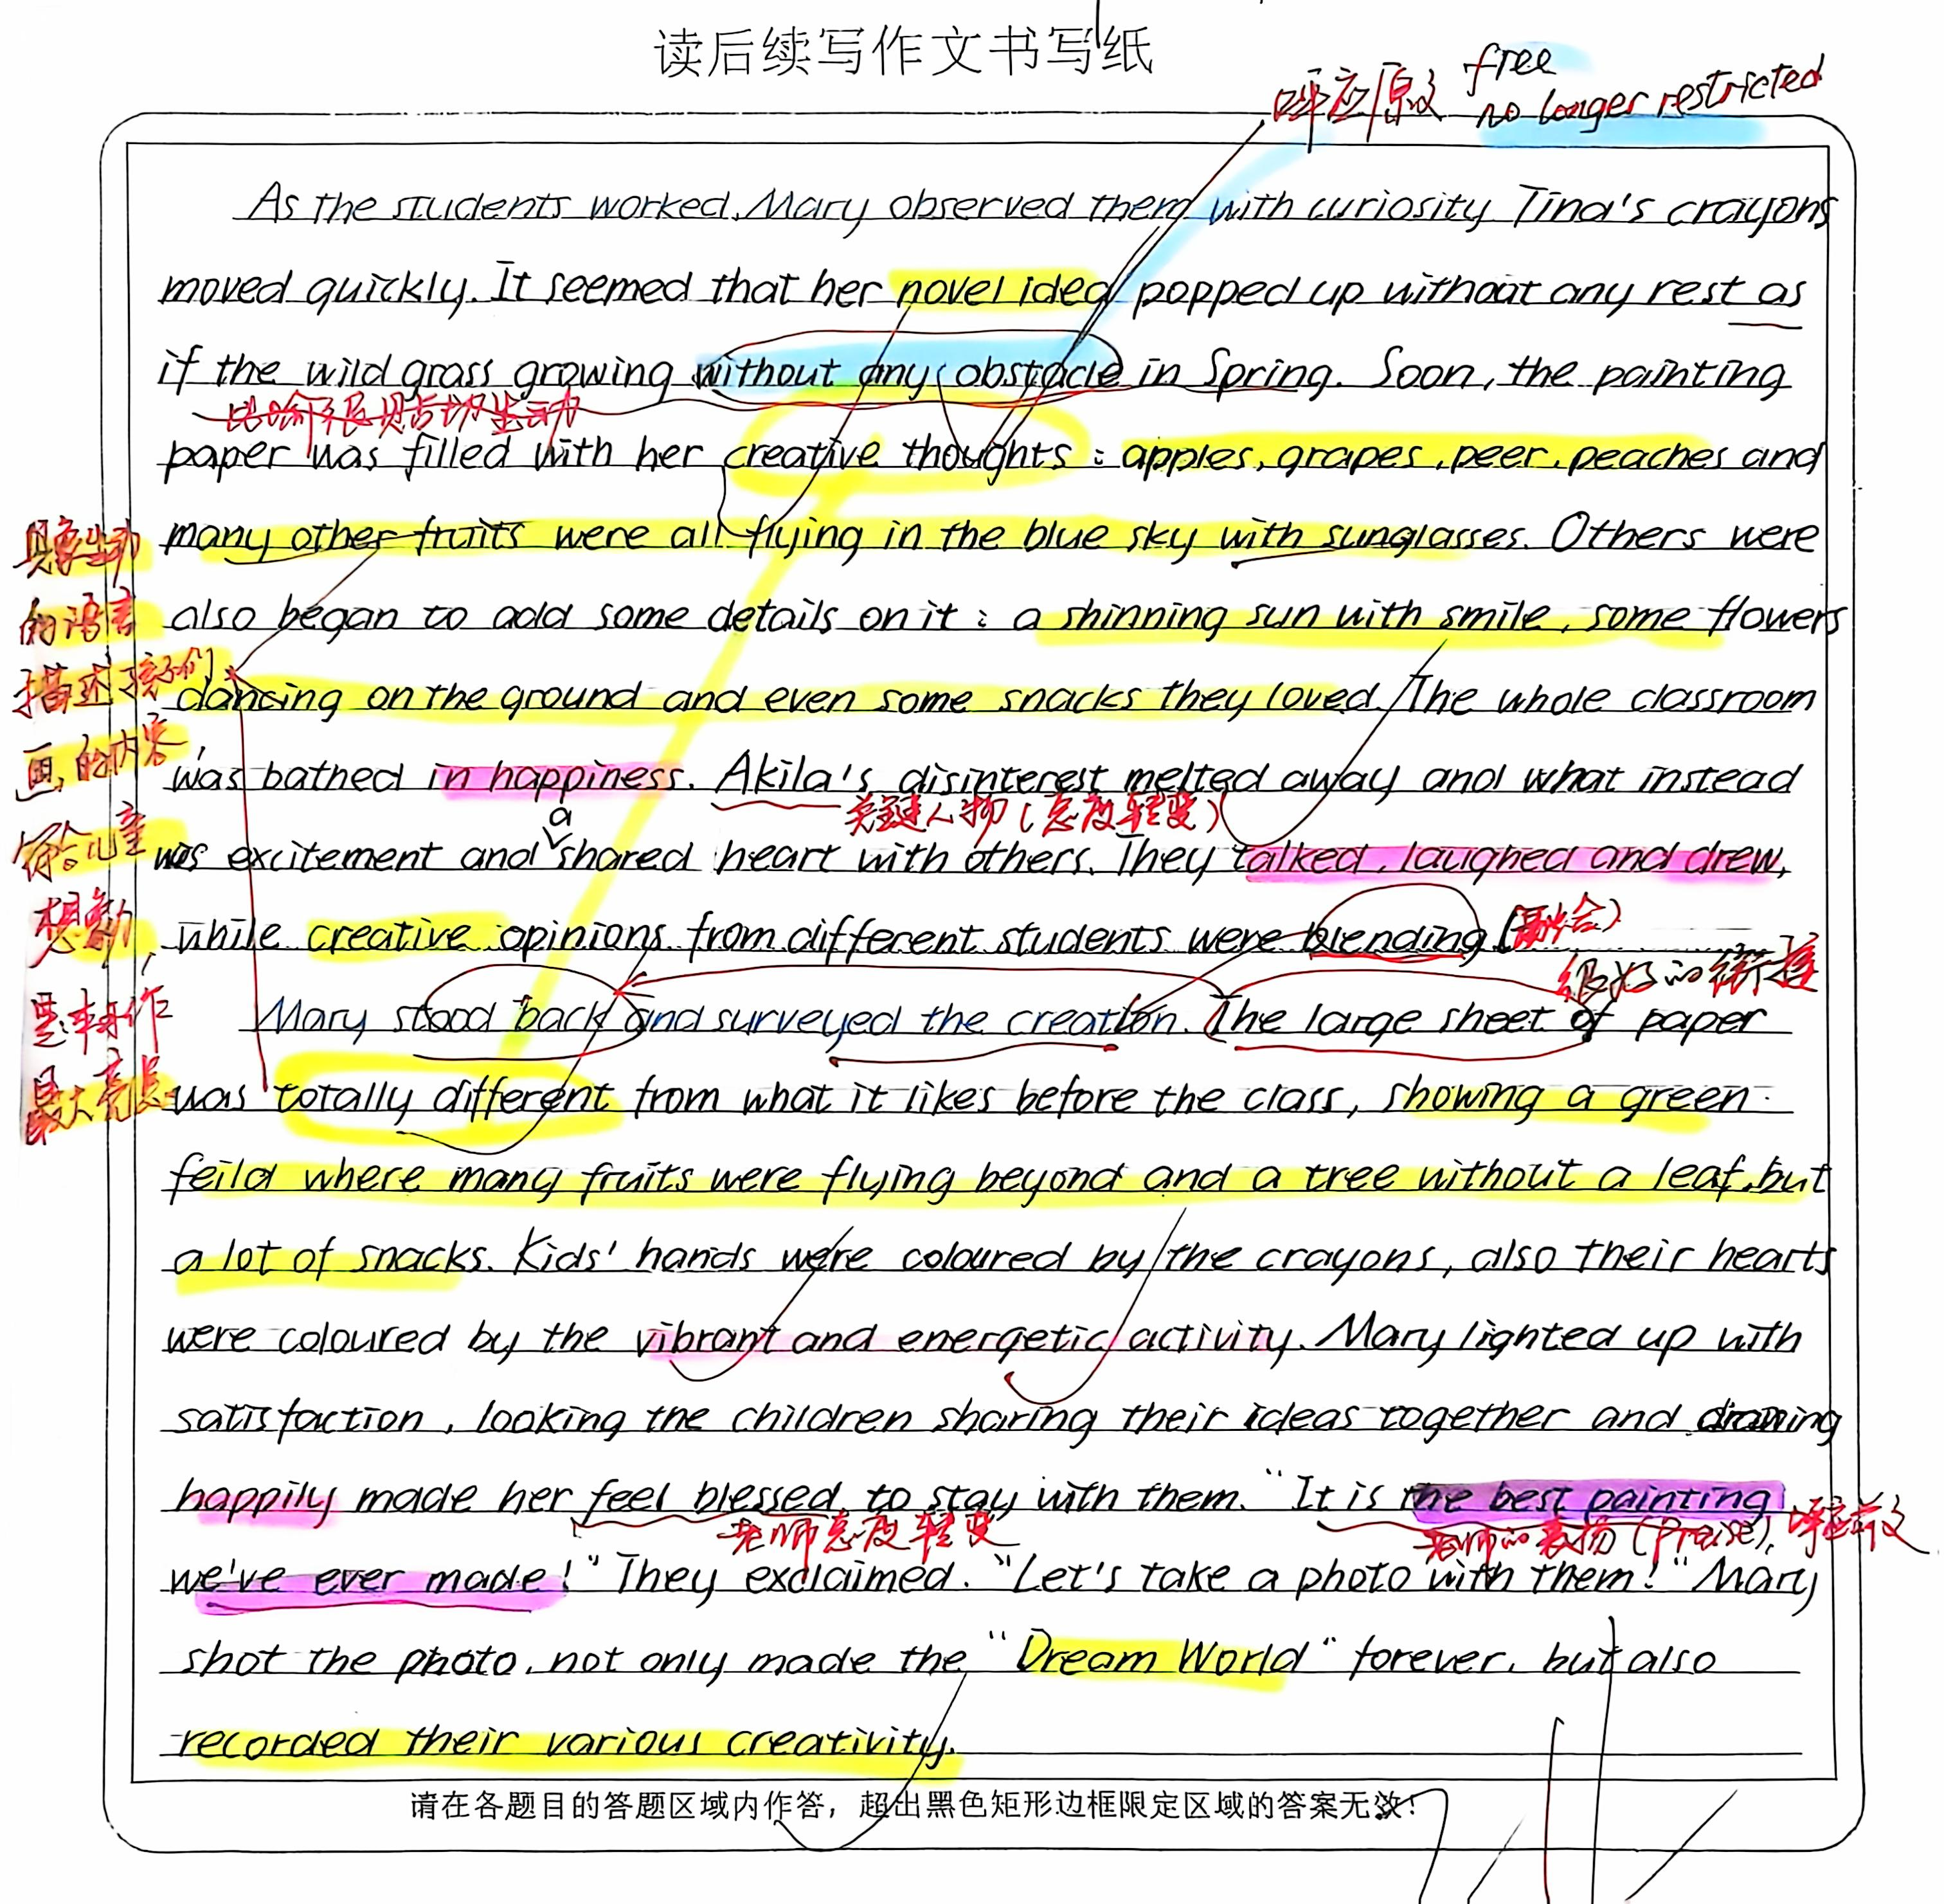 读后续写作文书写纸
呼应原文 free
no longer restricted
As the students worked, Mary observed them with curiosity. Tina's crayons
moved quickly. It seemed that her novel idea popped up without any rest as
if the wild grass growing without any obstacle in Spring. Soon, the painting
比喻很贴切生动
paper was filled with her creative thoughts : apples, grapes, peer, peaches and
many other fruits were all flying in the blue sky with sunglasses. Others were
also began to add some details on it : a shinning sun with smile, some flowers
dancing on the ground and even some snacks they loved. The whole classroom
was bathed in happiness. Akila's disinterest melted away and what instead
关键人物(态度转变)
a
was excitement and shared heart with others. They talked, laughed and drew,
while creative opinions from different students were blending.
(融合)
级好的衔接
具象生动
的语言
描述孩子们
画的内容,
符合儿童
想象,
是本习作
最大亮点
Mary stood back and surveyed the creation. The large sheet of paper
was totally different from what it likes before the class, showing a green
feild where many fruits were flying beyond and a tree without a leaf, but
a lot of snacks. Kids' hands were coloured by the crayons, also their hearts
were coloured by the vibrant and energetic activity. Mary lighted up with
satisfaction, looking the children sharing their ideas together and drawing
happily made her feel blessed to stay with them. "It is the best painting
老师态度转变
老师的表扬(praise),呼应前文
we've ever made!" They exclaimed. "Let's take a photo with them!" Mary
shot the photo, not only made the "Dream World" forever, but also
recorded their various creativity.
请在各题目的答题区域内作答，超出黑色矩形边框限定区域的答案无效!